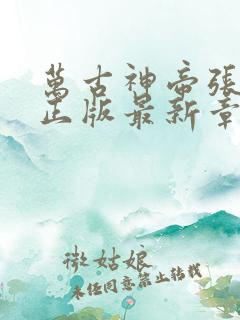 萬古神帝張
正版最新章
微姑娘
未經同意禁止轉載